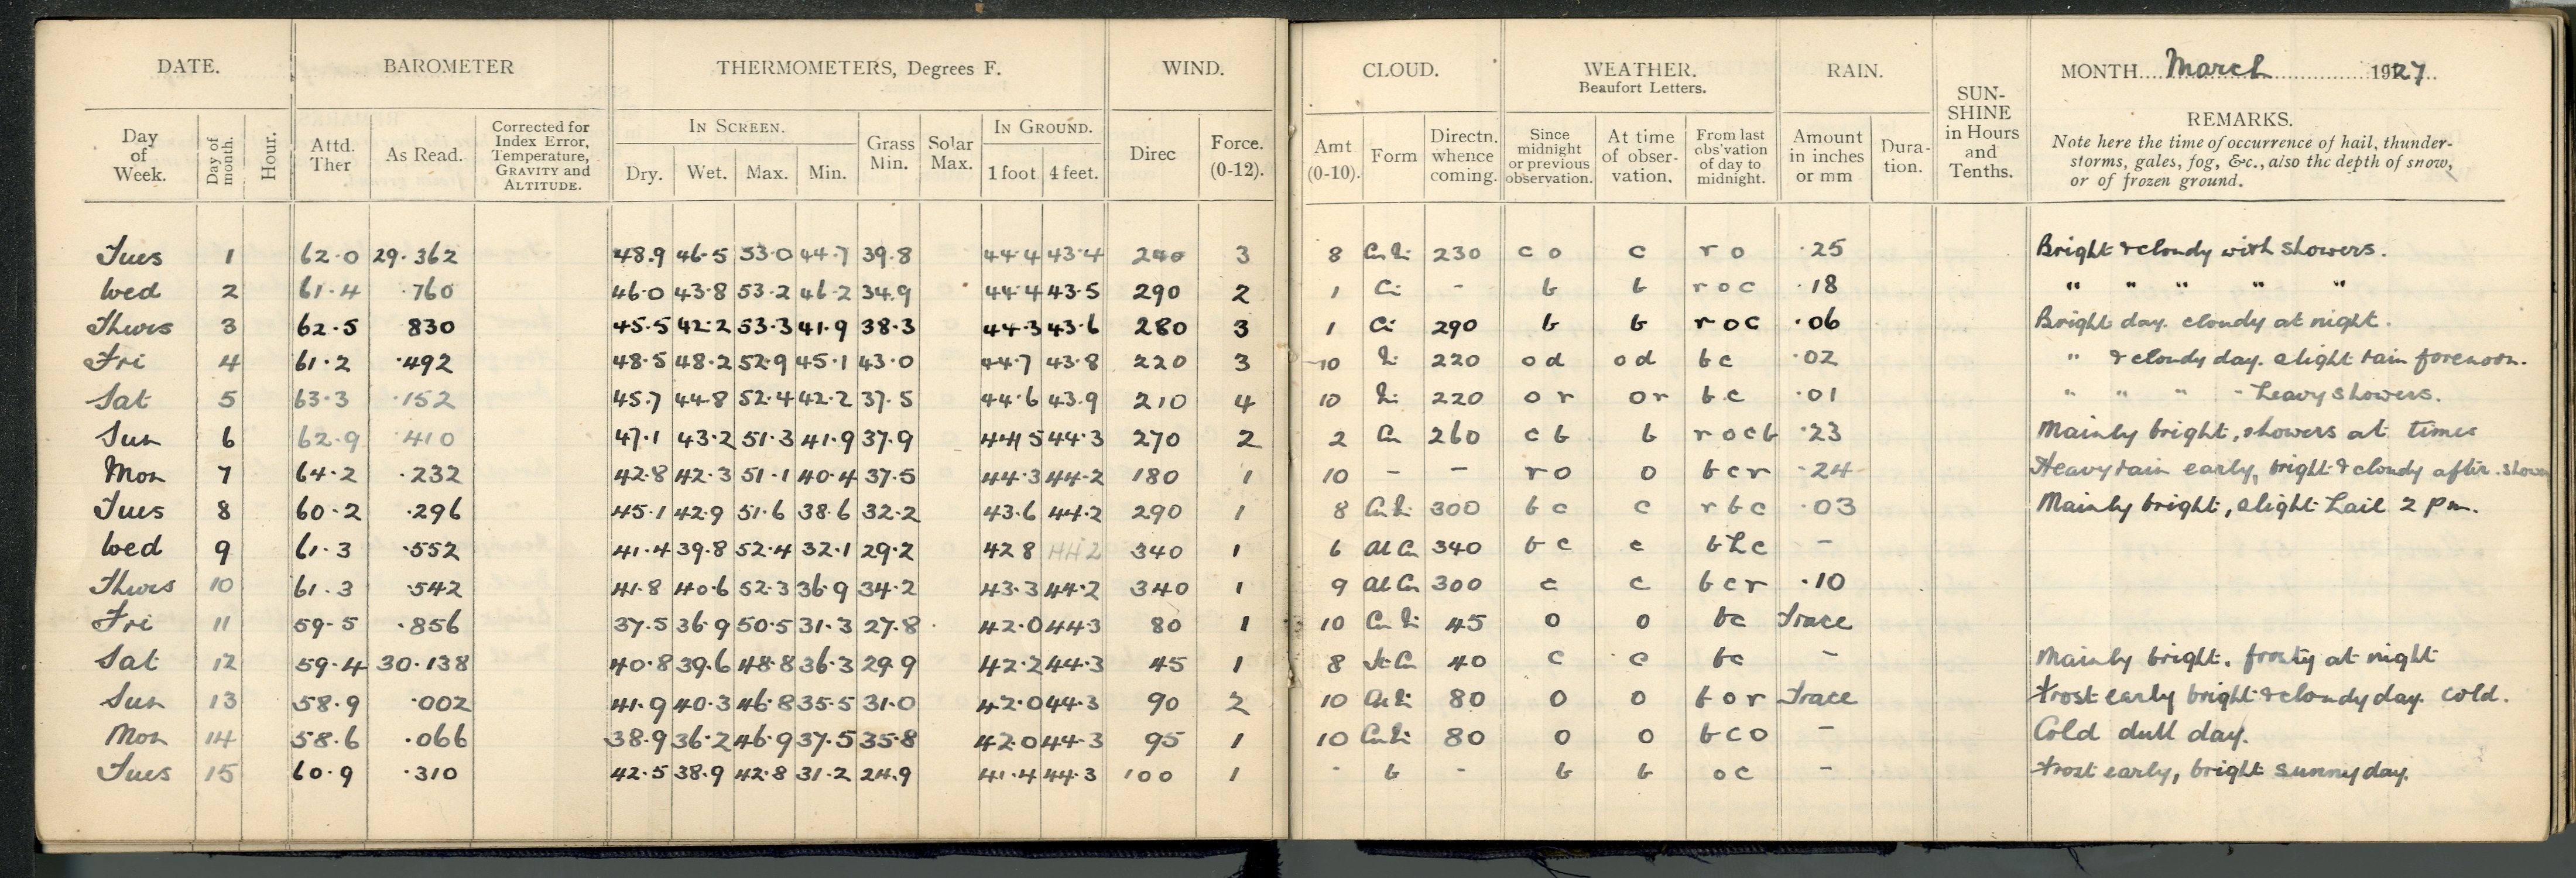 DATE. BAROMETER THERMOMETERS, Degrees F. WIND. CLOUD. WEATHER. Beaufort Letters. RAIN. SUN-SHINE in Hours and Tenths. MONTH March 1927
IN SCREEN. IN GROUND. REMARKS.
Day of Week. Day of month. Hour. Attd. Ther As Read. Corrected for Index Error, Temperature, GRAVITY and ALTITUDE. Dry. Wet. Max. Min. Grass Min. Solar Max. 1 foot 4 feet. Direc Force. (0-12). Amt (0-10). Form Directn. whence coming. Since midnight or previous observation. At time of obser-vation. From last obs'vation of day to midnight. Amount in inches or mm Dura-tion. Note here the time of occurrence of hail, thunder-storms, gales, fog, &c., also the depth of snow, or of frozen ground.
Tues 1 62.0 29.362 48.9 46.5 53.0 44.7 39.8 44.4 43.4 240 3 8 Cu Ni 230 c o c r o .25 Bright & cloudy with showers.
Wed 2 61.4 .760 46.0 43.8 53.2 46.2 34.9 44.4 43.5 290 2 1 Ci - b b r o c .18 " " " " "
Thurs 3 62.5 830 45.5 42.2 53.3 41.9 38.3 44.3 43.6 280 3 1 Ci 290 b b r o c .06 Bright day. cloudy at night.
Fri 4 61.2 .492 48.5 48.2 52.9 45.1 43.0 44.7 43.8 220 3 10 Ni 220 o d o d b c .02 " & cloudy day. slight rain forenoon.
Sat 5 63.3 .152 45.7 44.8 52.4 42.2 37.5 44.6 43.9 210 4 10 Ni 220 o r o r b c .01 " " " - heavy showers.
Sun 6 62.9 .410 47.1 43.2 51.3 41.9 37.9 44.5 44.3 270 2 2 Cu 260 c b b r o c b .23 Mainly bright, showers at times
Mon 7 64.2 .232 42.8 42.3 51.1 40.4 37.5 44.3 44.2 180 1 10 - - r o o b c r .24 Heavy rain early, bright & cloudy after. shower
Tues 8 60.2 .296 45.1 42.9 51.6 38.6 32.2 43.6 44.2 290 1 8 Cu Ni 300 b c c r b c .03 Mainly bright, slight hail 2 pm.
Wed 9 61.3 .552 41.4 39.8 52.4 32.1 29.2 42 8 44 2 340 1 6 Al Cu 340 b c c b h c -
Thurs 10 61.3 .542 41.8 40.6 52.3 36.9 34.2 43.3 44.2 340 1 9 Al Cu 300 c c b c r .10
Fri 11 59.5 .856 37.5 36.9 50.5 31.3 27.8 42.0 44.3 80 1 10 Cu Ni 45 o o bc Trace
Sat 12 59.4 30.138 40.8 39.6 48.8 36.3 29.9 42.2 44.3 45 1 8 St Cu 40 c c bc - Mainly bright. frosty at night
Sun 13 58.9 .002 41.9 40.3 46.8 35.5 31.0 42.0 44.3 90 2 10 80 o o b o r Trace Frost early bright & cloudy day. cold.
Mon 14 58.6 .066 38.9 36.2 46.9 37.5 35.8 42.0 44.3 95 1 10 Cu Ni 80 o o b c o - Cold dull day.
Tues 15 60.9 .310 42.5 38.9 42.8 31.2 24.9 41.4 44.3 100 1 - b - b b o c - Frost early, bright sunny day.